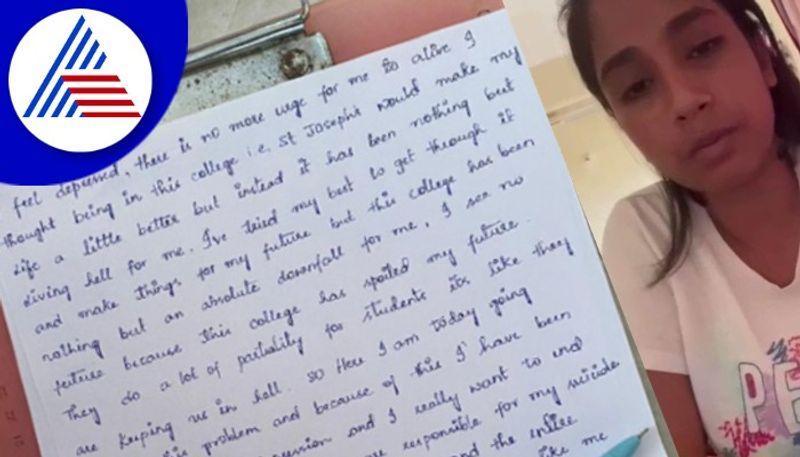 feel depressed, there is no more urge for me to alive I
thought being in this college i.e. St Joseph's would make my
life a little better but instead it has been nothing but
living hell for me. I've tried my best to get through it
and make things for my future but this college has been
nothing but an absolute downfall for me, I see no
future because this college has spoiled my future.
They do a lot of partiality for students its like they
are keeping us in hell. So Here I am today going
this problem and because of this I have been
and I really want to end
responsible for my suicide
and the entire
like me